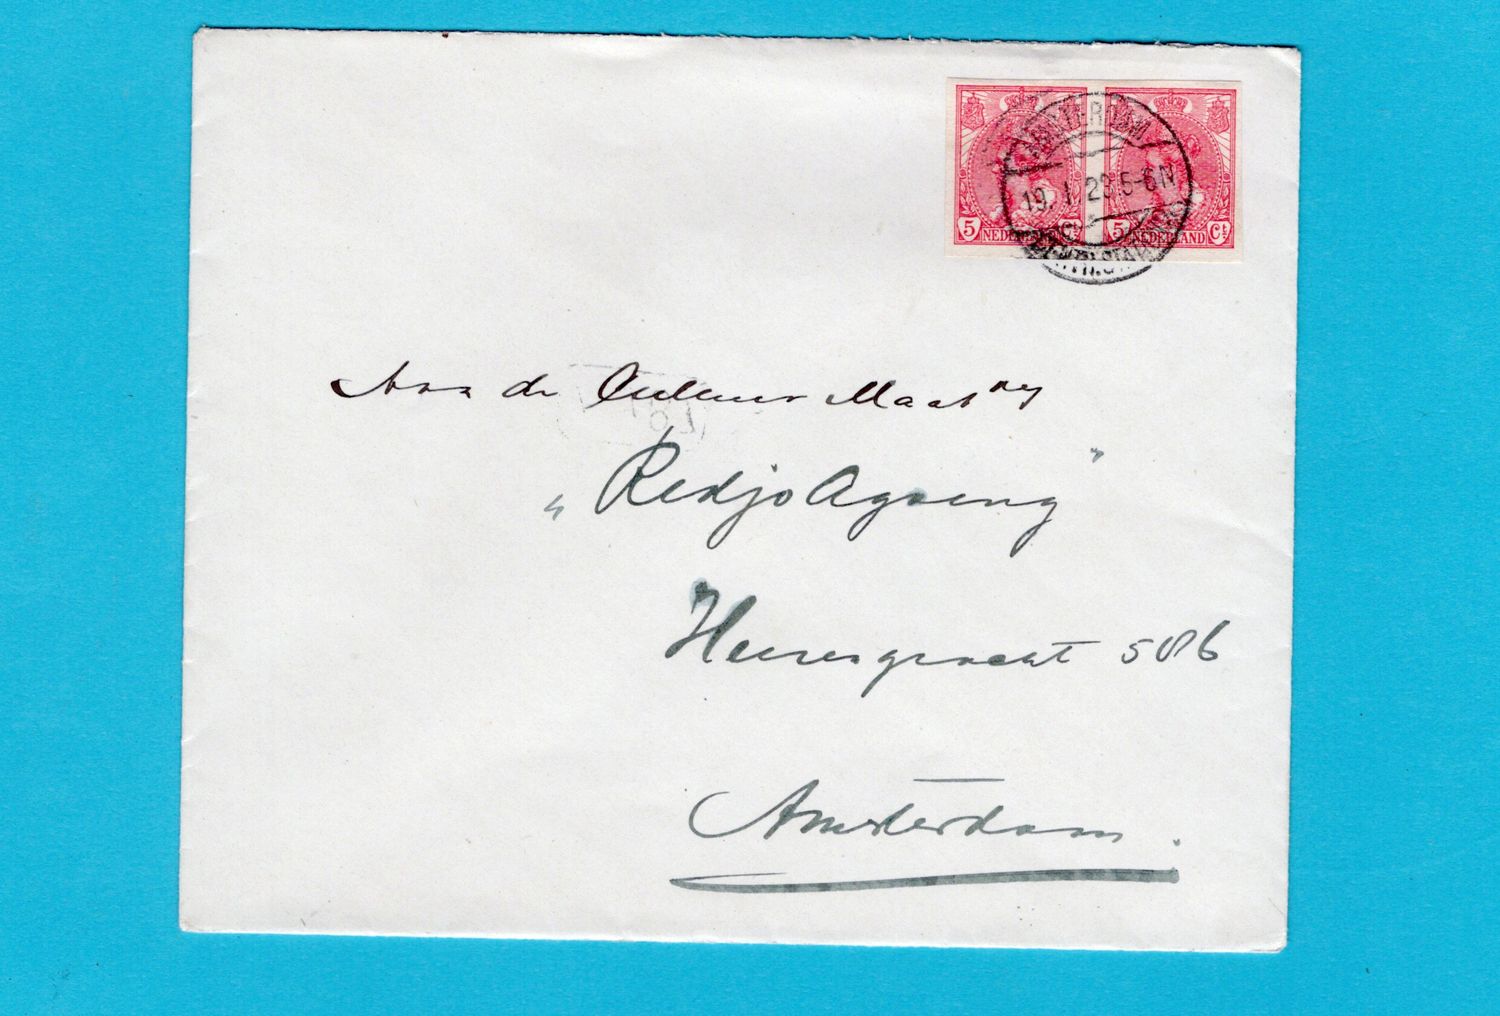 5 NEDERLAND Ct
5 NEDERLAND Ct
AMSTERDAM
19.1.23.5-6N
Aan de Cultuur Maatij
„Redjo Agoeng”
Heerengracht 586
Amsterdam.